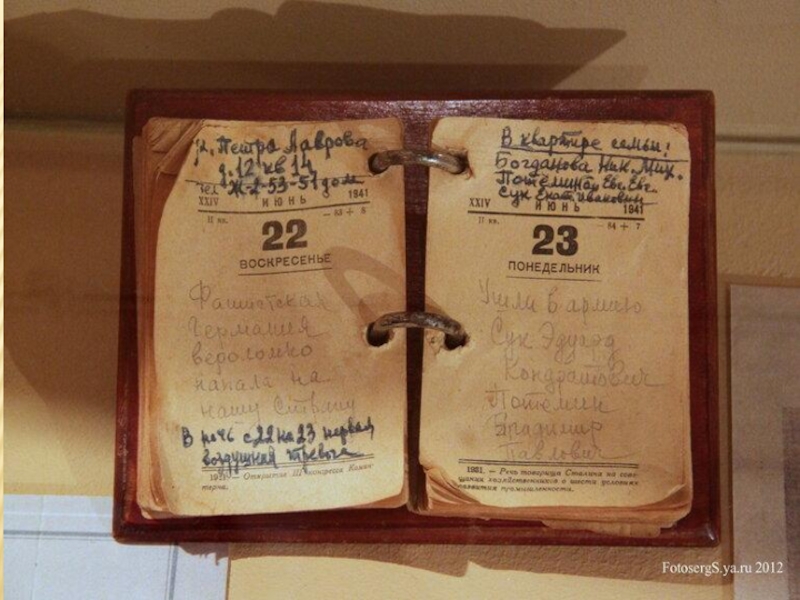 ул. Петра Лаврова
д. 12 кв 14
тел Ж-2-53-51 дом
XXIV ИЮНЬ 1941
II кв. — 83 + 8
22
ВОСКРЕСЕНЬЕ
Фашистская
Германия
вероломно
напала на
нашу
В ночь с 22 на 23 первая
воздушная тревога
1921. — Открытие III конгресса Комин-
терна.
В квартире семьи:
Богданова Ник. Мих.
Потемина Евг. Евг.
Сук Екат. Ивановны
XXIV ИЮНЬ 1941
II кв. — 84 + 7
23
ПОНЕДЕЛЬНИК
Ушли в армию
Сук Эдуард
Кондратович
Потемин
Владимир
Павлович
1931. — Речь товарища Сталина на сове-
щании хозяйственников о шести условиях
развития промышленности.
FotosergS.ya.ru 2012